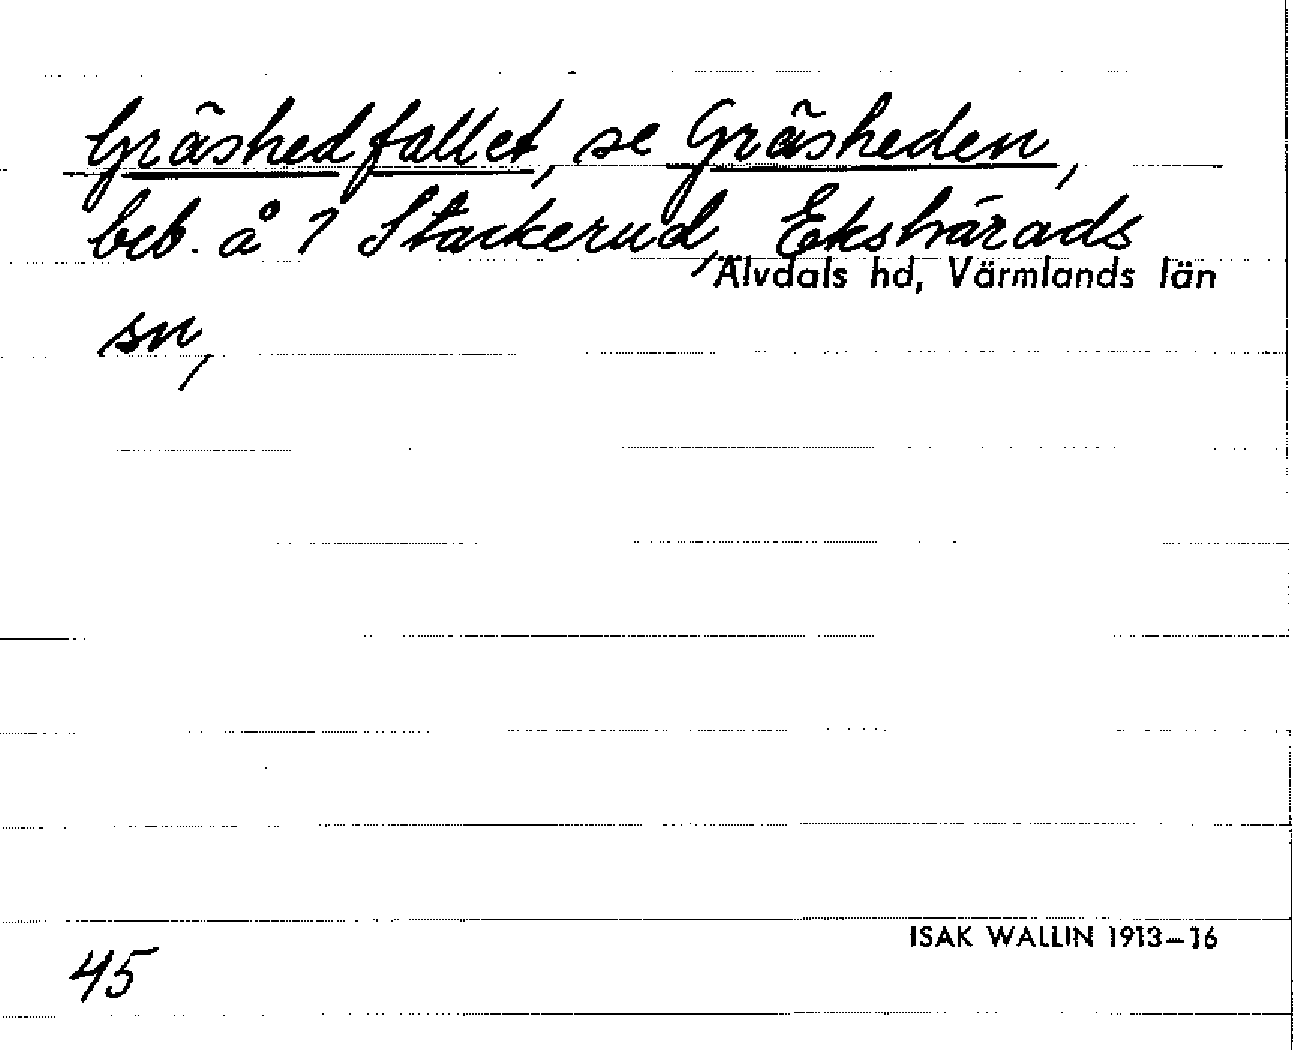 Gräshedfallet, se Gräsheden,
beb. å 1 Stackerud, Ekshärads
Älvdals hd, Värmlands län
sn,
ISAK WALLIN 1913–16
45